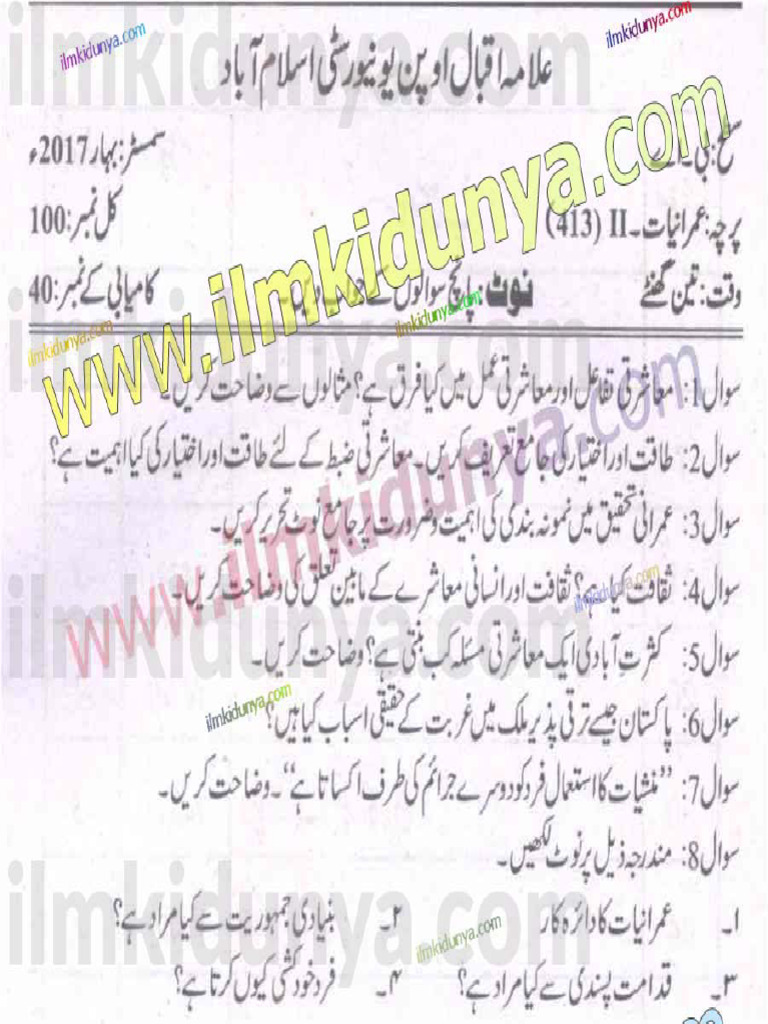 علامہ اقبال اوپن یونیورسٹی اسلام آباد
سطح: بی۔اے سمسٹر: بہار 2017ء
پرچہ: عمرانیات۔II (413) کل نمبر: 100
وقت: تین گھنٹے نوٹ پانچ سوالوں کے جواب دیں۔ کامیابی کے نمبر: 40
سوال 1: معاشرتی تفاعل اور معاشرتی عمل میں کیا فرق ہے؟ مثالوں سے وضاحت کریں۔
سوال 2: طاقت اور اختیار کی جامع تعریف کریں۔ معاشرتی ضبط کے لئے طاقت اور اختیار کی کیا اہمیت ہے؟
سوال 3: عمرانی تحقیق میں نمونہ بندی کی اہمیت و ضرورت پر جامع نوٹ تحریر کریں۔
سوال 4: ثقافت کیا ہے؟ ثقافت اور انسانی معاشرے کے مابین تعلق کی وضاحت کریں۔
سوال 5: کثرتِ آبادی ایک معاشرتی مسئلہ کب بنتی ہے؟ وضاحت کریں۔
سوال 6: پاکستان جیسے ترقی پذیر ملک میں غربت کے حقیقی اسباب کیا ہیں؟
سوال 7: ”منشیات کا استعمال فرد کو دوسرے جرائم کی طرف اکساتا ہے“۔ وضاحت کریں۔
سوال 8: مندرجہ ذیل پر نوٹ لکھیں۔
۱۔ عمرانیات کا دائرہ کار ۲۔ بنیادی جمہوریت سے کیا مراد ہے؟
۳۔ قدامت پسندی سے کیا مراد ہے؟ ۴۔ فرد خودکشی کیوں کرتا ہے؟
ilmkidunya.com
www.ilmkidunya.com